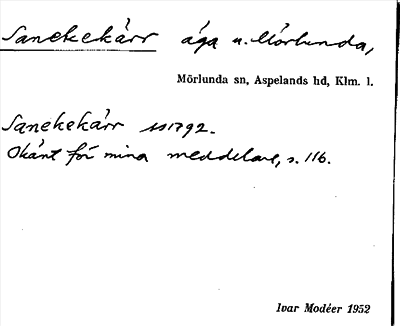 Sanekekärr äga u. Mörlunda,
Mörlunda sn, Aspelands hd, Klm. l.
Sanekekärr ss1792.
Okänt för mina meddelare, s. 116.
Ivar Modéer 1952